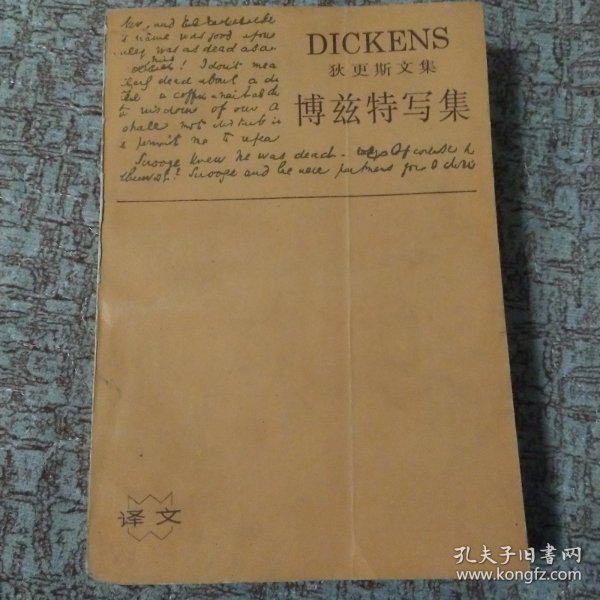 , and
name was good upon
was as dead as a
! I don't mea
dead about a d
a coffin nail as the
wisdom of our a
shall not disturb it
permit me to repea
Scrooge knew he was dead. Of course h
Scrooge and he were partners for I don't
DICKENS
狄更斯文集
博兹特写集
译文
孔夫子旧书网
www.kongfz.com